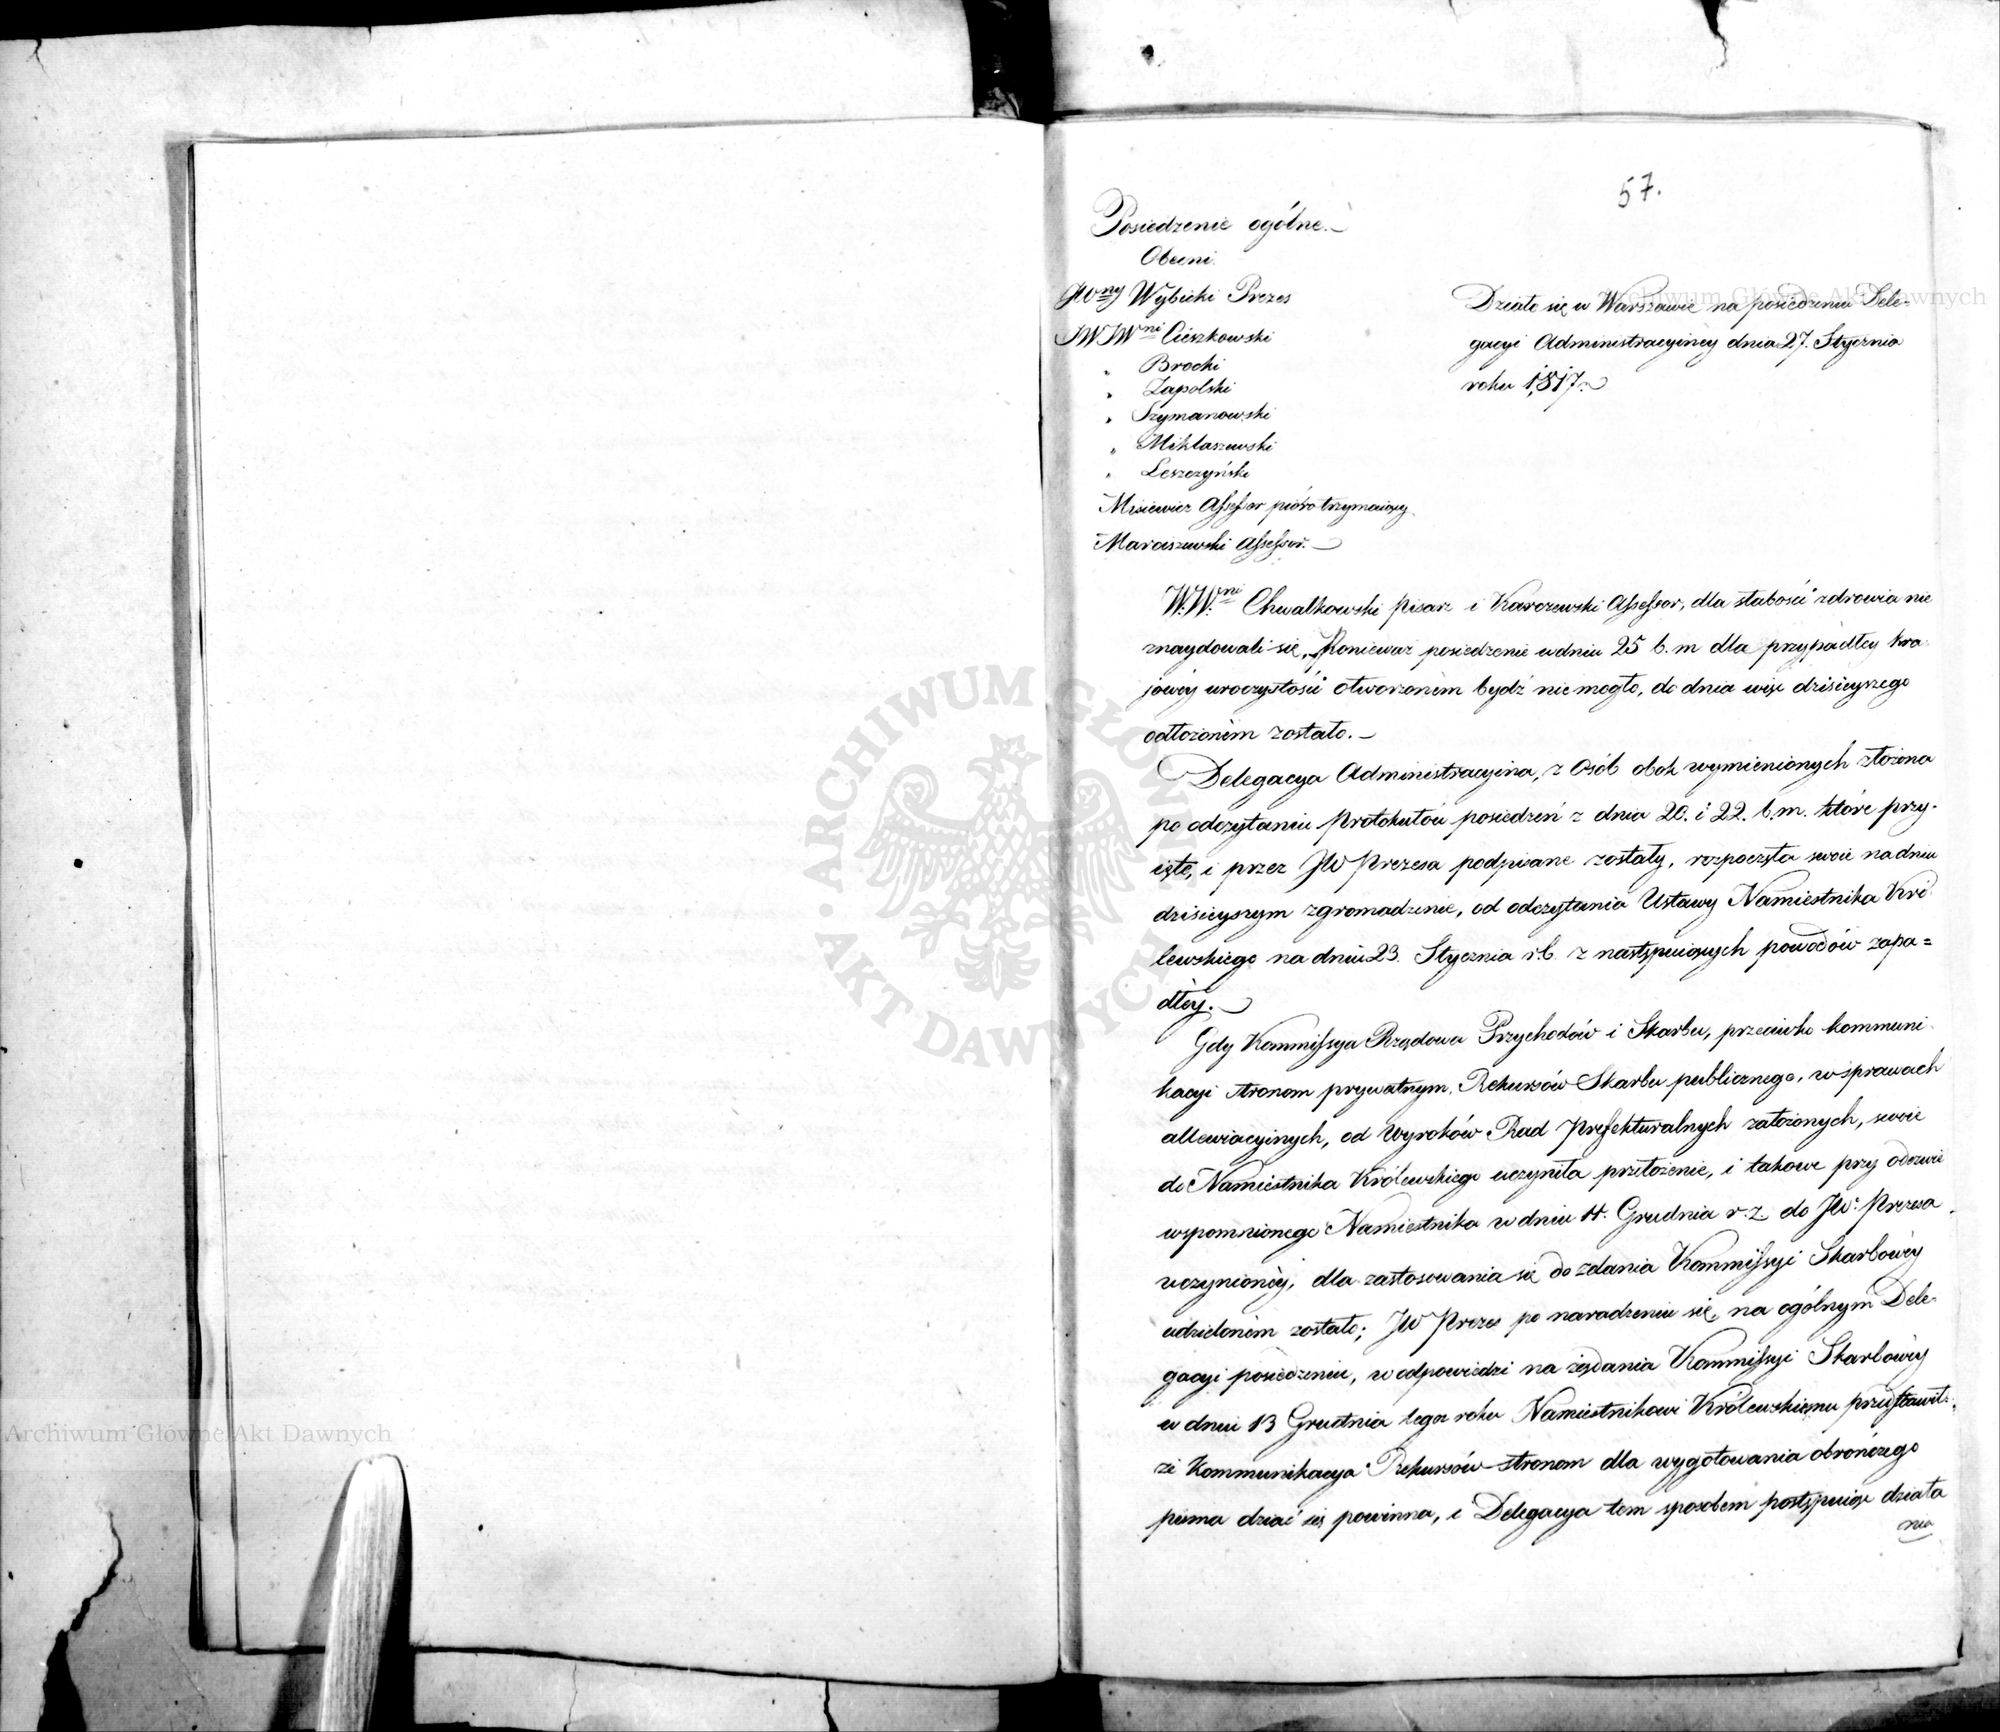 57.
Posiedzenie ogólne.
Obecni.
JWny Wybicki Prezes
JWWni Cieszkowski
" Brocki
" Zapolski
" Szymanowski
" Miklaszewski
" Leszczyński
Misiewicz Assessor pióro trzymaiący
Maraszewski Assessor.
Działo się w Warszawie na posiedzeniu Dele-
gacyi Administracyinéy dnia 27. Stycznia
roku 1817.
W.W.ni Chwalkowski pisarz i Karczewski Assessor, dla słabości zdrowia nie
znaydowali się. Ponieważ posiedzenie w dniu 25 b.m dla przypadłey kra-
jowéy uroczystości otworzoném bydź nie mogło, do dnia więc dzisieyszego
odłożoném zostało.
Delegacya Administracyina, z Osób obok wymienionych złożona
po odczytaniu Protokułów posiedzeń z dnia 20. i 22. b.m. które przy-
ięte, i przez JW Prezesa podpisane zostały, rozpoczęła swoie na dniu
dzisieyszym zgromadzenie, od odczytania Ustawy Namiestnika Kró-
lewskiego na dniu 23. Stycznia r.b. z następuiących powodów zapa=
dłéy.
Gdy Kommissya Rządowa Przychodów i Skarbu, przeciwko kommuni-
kacyi stronom prywatnym, Rekursów Skarbu publicznego, w sprawach
allewiacyinych, od Wyroków Rad Prefekturalnych założonych, swoie
do Namiestnika Królewskiego uczyniła przełożenie, i takowe przy odezwie
wspomnionego Namiestnika w dniu 4. Grudnia r. z. do JW. Prezesa
uczynionéy, dla zastosowania się do zdania Kommissyi Skarbowéy
udzieloném zostało; JW Prezes po naradzeniu się, na ogólnym Dele-
gacyi posiedzeniu, w odpowiedzi na żądania Kommissyi Skarbowéy
w dniu 13 Grudnia tegoż roku Namiestnikowi Królewskiemu przedstawił:
że Kommunikacya Rekursów stronom dla wygotowania obrończego
pisma dziać się powinna, i Delegacya tem sposobem postępuiąc działa
nia
Archiwum Główne Akt Dawnych
ARCHIWUM GŁÓWNE · AKT DAWNYCH ·
Archiwum Główne Akt Dawnych